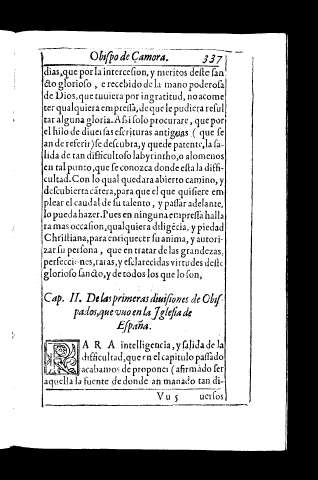 Obispo de Çamora. 337
dias, que por la intercesion, y meritos deste san
cto glorioso, e recebido de la mano poderosa
de Dios, que tuuiera por ingratitud, no acome
ter qualquiera empressa, de que le pudiera resul
tar alguna gloria. Assi solo procurare, que por
el hilo de diuersas escrituras antiguas (que se
an de referir) se descubra, y quede patente, la sa-
lida de tan difficultoso labyrintho, o alomenos
en tal punto, que se conozca donde esta la diffi-
cultad. Con lo qual quedara abierto camino, y
descubierta cãtera, para que el que quisiere em
plear el caudal de su talento, y passar adelante,
lo pueda hazer. Pues en ninguna empressa halla
ra mas occasion, qualquiera diligẽcia, y piedad
Christiana, para enriquecer su anima, y autori-
zar su persona, que en tratar de las grandezas,
perfecciones, raras, y esclarecidas virtudes deste
glorioso sancto, y de todos los que lo son,
Cap. II. De las primeras diuisiones de Obis-
pados, que vuo en la Iglesia de
España.
PARA intelligencia, y salida de la
difficultad, que en el capitulo passado
acabamos de proponer (afirmado ser
aquella la fuente de donde an manado tan di-
Vu 5 uersos